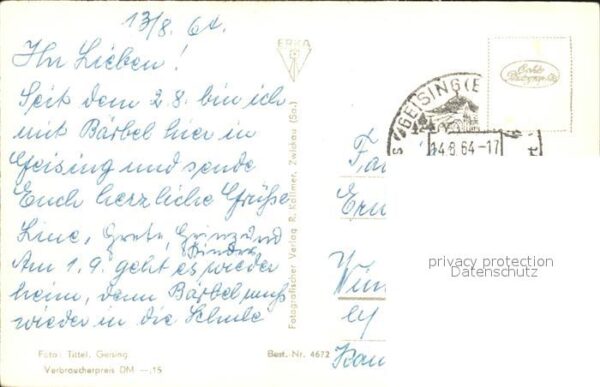 13/8. 64.
Ihr Lieben!
Seit dem 2.8. bin ich
mit Bärbel hier in
Geising und sende
Euch herzliche Grüße
Eure, Grete, und
Kinder
Am 1.9. geht es wieder
heim, denn Bärbel muß
wieder in die Schule
Foto: Tittel, Geising
Verbraucherpreis DM —.15
Best. Nr. 4672
ERKA
Fotografischer Verlag R. Kallmer, Zwickau (Sa.)
GEISING (E
14.8.64-17
Echte
Fa
Ern
Wün
privacy protection
Datenschutz